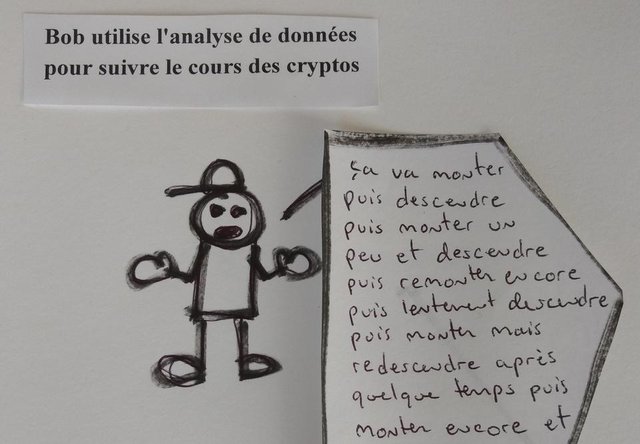 Bob utilise l'analyse de données
pour suivre le cours des cryptos
ça va monter
puis descendre
puis monter un
peu et descendre
puis remonter encore
puis lentement descendre
puis monter mais
redescendre après
quelque temps puis
monter encore et